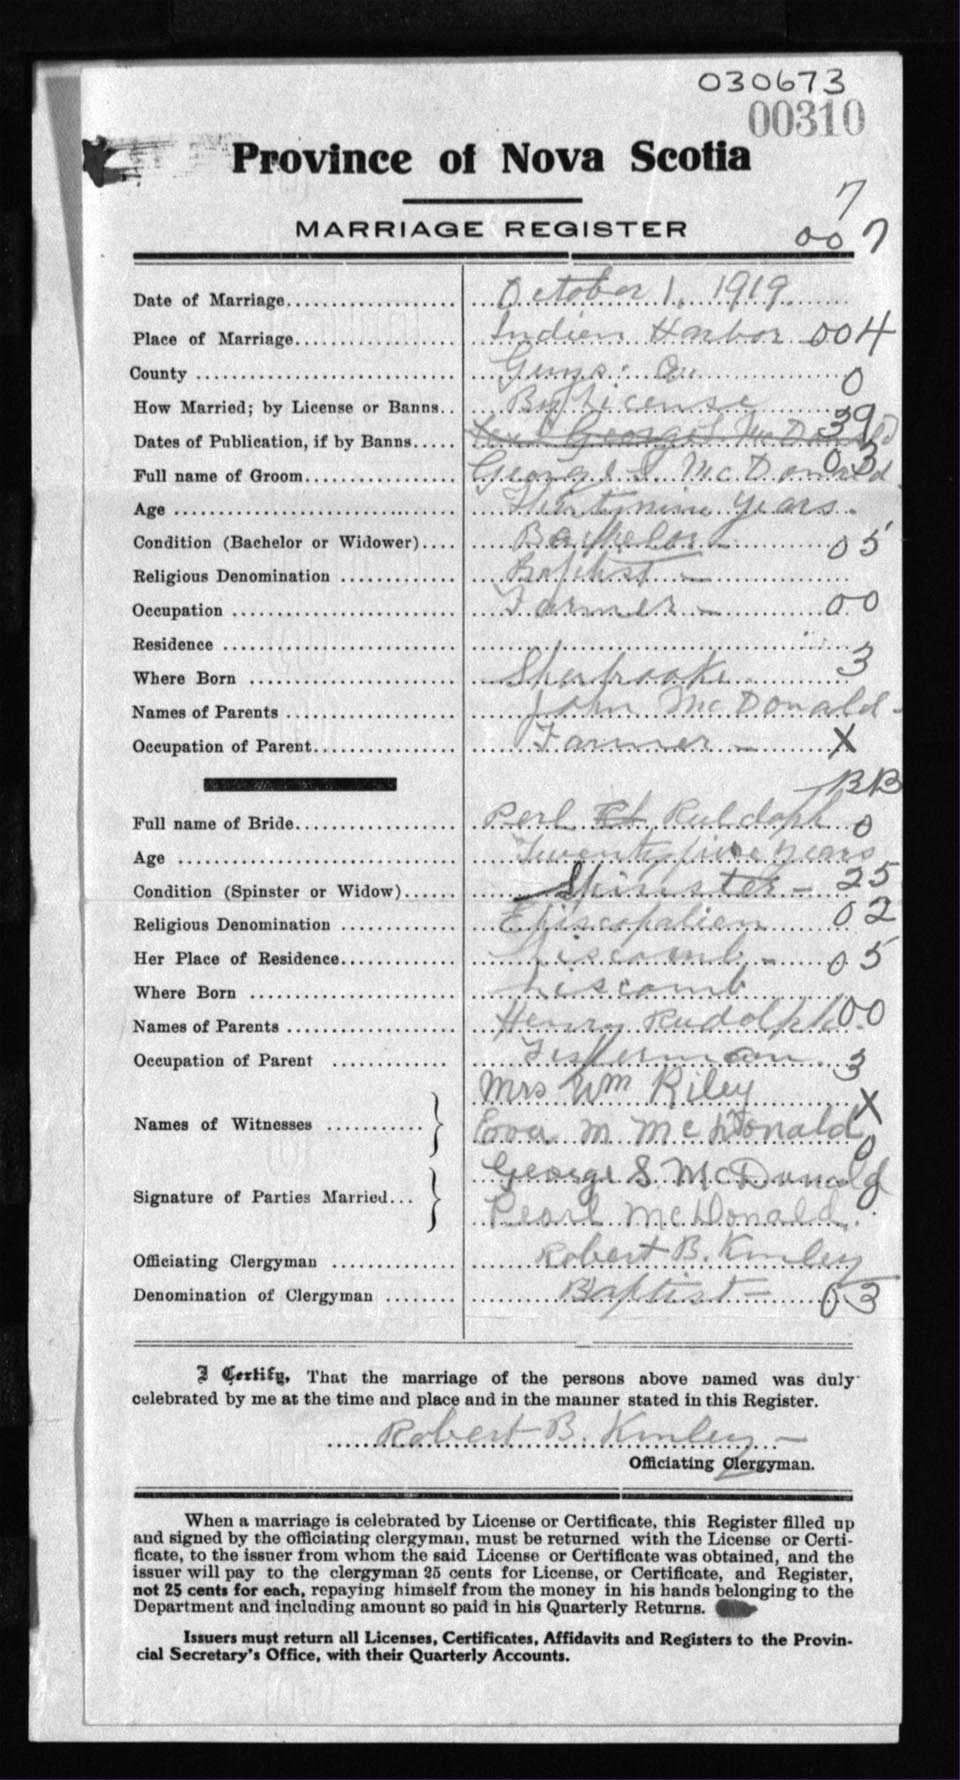 030673
00310
Province of Nova Scotia
7
MARRIAGE REGISTER
007
Date of Marriage.................... October 1, 1919
Place of Marriage................... Indien Harbor 004
County .............................. Guys: Co. 0
How Married; by License or Banns.. By License
Dates of Publication, if by Banns..... George S. McDonald 39
Full name of Groom.................. George S. McDonald 03
Age ................................. Thirtynine years.
Condition (Bachelor or Widower).... Bachelor 05
Religious Denomination ............. Baptist -
Occupation .......................... Farmer - 00
Residence ...........................
Where Born ........................ Sherbrooke 3
Names of Parents .................... John McDonald -
Occupation of Parent................. Farmer - X
BB
Full name of Bride................... Perl Ruldoph 0
Age ................................. Twentyfive years
Condition (Spinster or Widow)...... Spinster - 25
Religious Denomination ............. Episcopalien 02
Her Place of Residence.............. Liscomb - 05
Where Born ........................ Liscomb
Names of Parents .................... Henry Rudolph. 00
Occupation of Parent ............. Fisherman. 3
Mrs Wm Riley
X
Names of Witnesses ........... } Eva M McDonald
0
George S. McDonald
Signature of Parties Married... } 0
Pearl McDonald.
Officiating Clergyman .............. Robert B. Kinley
Denomination of Clergyman ........ Baptist - 03
I Certify, That the marriage of the persons above named was duly
celebrated by me at the time and place and in the manner stated in this Register.
Robert B. Kinley -
Officiating Clergyman.
When a marriage is celebrated by License or Certificate, this Register filled up
and signed by the officiating clergyman, must be returned with the License or Certi-
ficate, to the issuer from whom the said License or Certificate was obtained, and the
issuer will pay to the clergyman 25 cents for License, or Certificate, and Register,
not 25 cents for each, repaying himself from the money in his hands belonging to the
Department and including amount so paid in his Quarterly Returns.
Issuers must return all Licenses, Certificates, Affidavits and Registers to the Provin-
cial Secretary's Office, with their Quarterly Accounts.